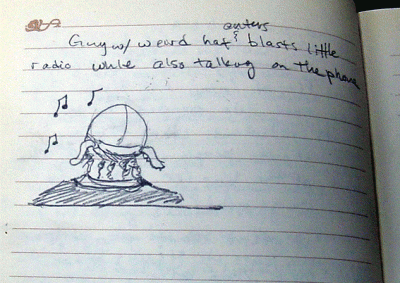 enters
Guy w/ weard hat & blasts little
radio while also talking on the phone